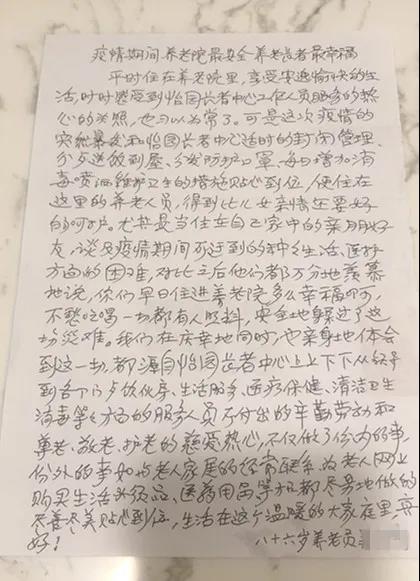 疫情期间养老院最安全养老长者最幸福
平时住在养老院里,享受安逸愉快的生
活,时时感受到怡园长者中心工作人员服务的热
心的关照,也习以为常了。可是这次疫情的
突然暴发和怡园长者中心适时的封闭管理、
分发送饭到屋、分发防护口罩、每日增加消
毒喷洒维护卫生的措施贴心到位,使住在
这里的养老人员,得到比儿女亲情还要好
的呵护。尤其是当住在自己家中的亲朋好
友,谈及疫情期间所遇到的种种生活、医疗
方面的困难,对比之后他们都万分地羡慕
地说,你们早日住进养老院多么幸福啊,
不愁吃喝一切都有人照料,安全地躲过了这
场灾难。我们在庆幸地同时,也亲身地体会
到这一切,都源自怡园长者中心上上下下从领导
到各个门点饮伙房、生活服务、医疗保健、清洁卫生
消毒等等方面的服务人员所付出的辛勤劳动和
尊老、敬老、护老的慈爱热心,不仅做了份内的事,
份外的事如与老人家属的经常联系、为老人网上
购买生活必须品、医药用品等和都尽力地做的
尽善尽美贴心到位,生活在这个温暖的大家庭里真
好!
八十六岁养老员